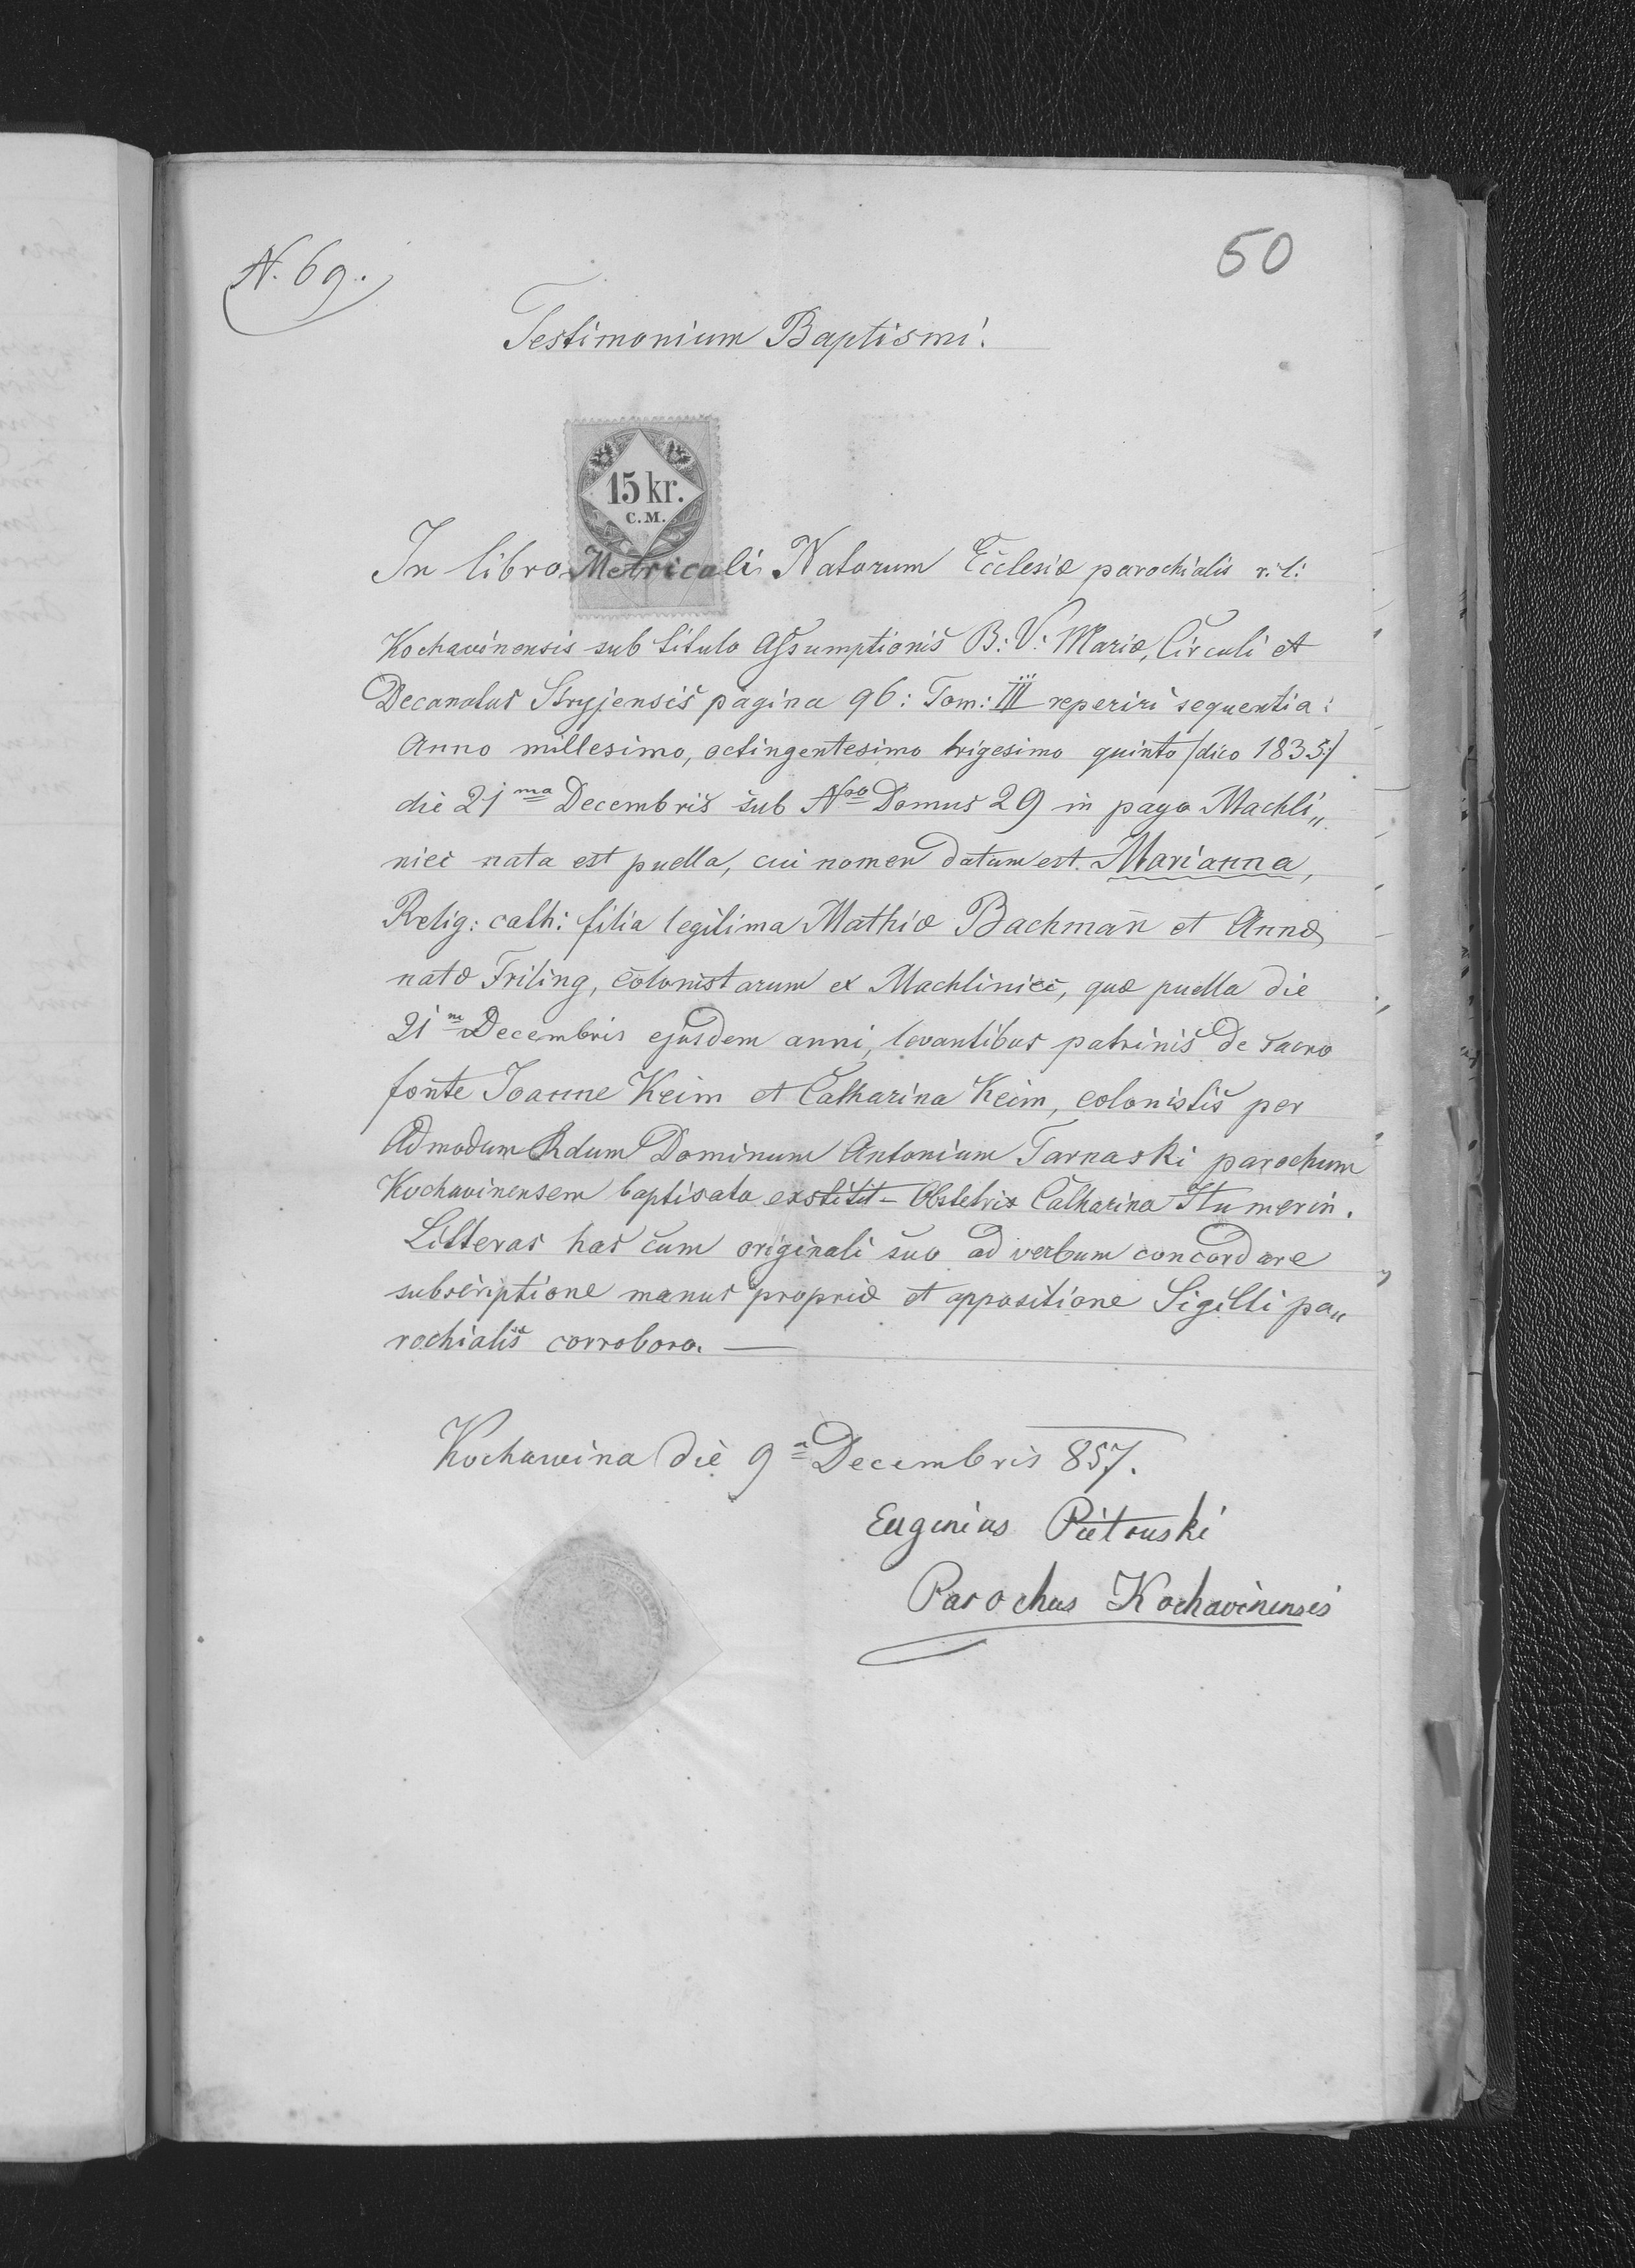 N. 69.
50
Testimonium Baptismi.
15 kr.
C.M.
In libro Metricali Natorum Ecclesiæ parochialis r: l:
Kochavinensis sub titulo Assumptionis B: V: Mariæ, Circuli et
Decanatus Stryjensis pagina 96: Tom: III reperiri sequentia:
Anno millesimo, octingentesimo trigesimo quinto /dico 1835/
die 21ma Decembris sub Nro Domus 29 in pago Machli„
nieć nata est puella, cui nomen datum est Marianna,
Relig: cath: filia legitima Mathiæ Bachmañ et Annæ
natæ Friling, colonistarum ex Machlinieć, quæ puella die
21ma Decembris ejusdem anni, levantibus patrinis de sacro
fonte Joanne Keim et Catharina Keim, colonistis per
Admodum Rdum Dominum Antonium Tarnaski parochum
Kochavinensem baptisata exstitit - Obstetrix Catharina Stumerin.
Litteras has cum originali suo ad verbum concordare
subscriptione manus propriæ et appositione Sigilli pa„
rochialis corroboro. —
Kochawina die 9a Decembris 857.
Eugenius Pietouski
Parochus Kochavinensis